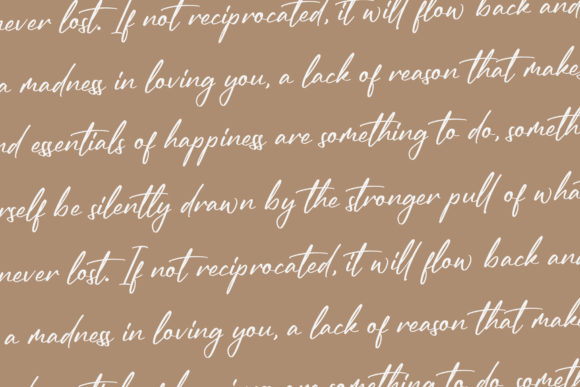 never lost. If not reciprocated, it will flow back and
a madness in loving you, a lack of reason that make
nd essentials of happiness are something to do, someth
rself be silently drawn by the stronger pull of wha
never lost. If not reciprocated, it will flow back and
a madness in loving you, a lack of reason that make
are something to do, someth